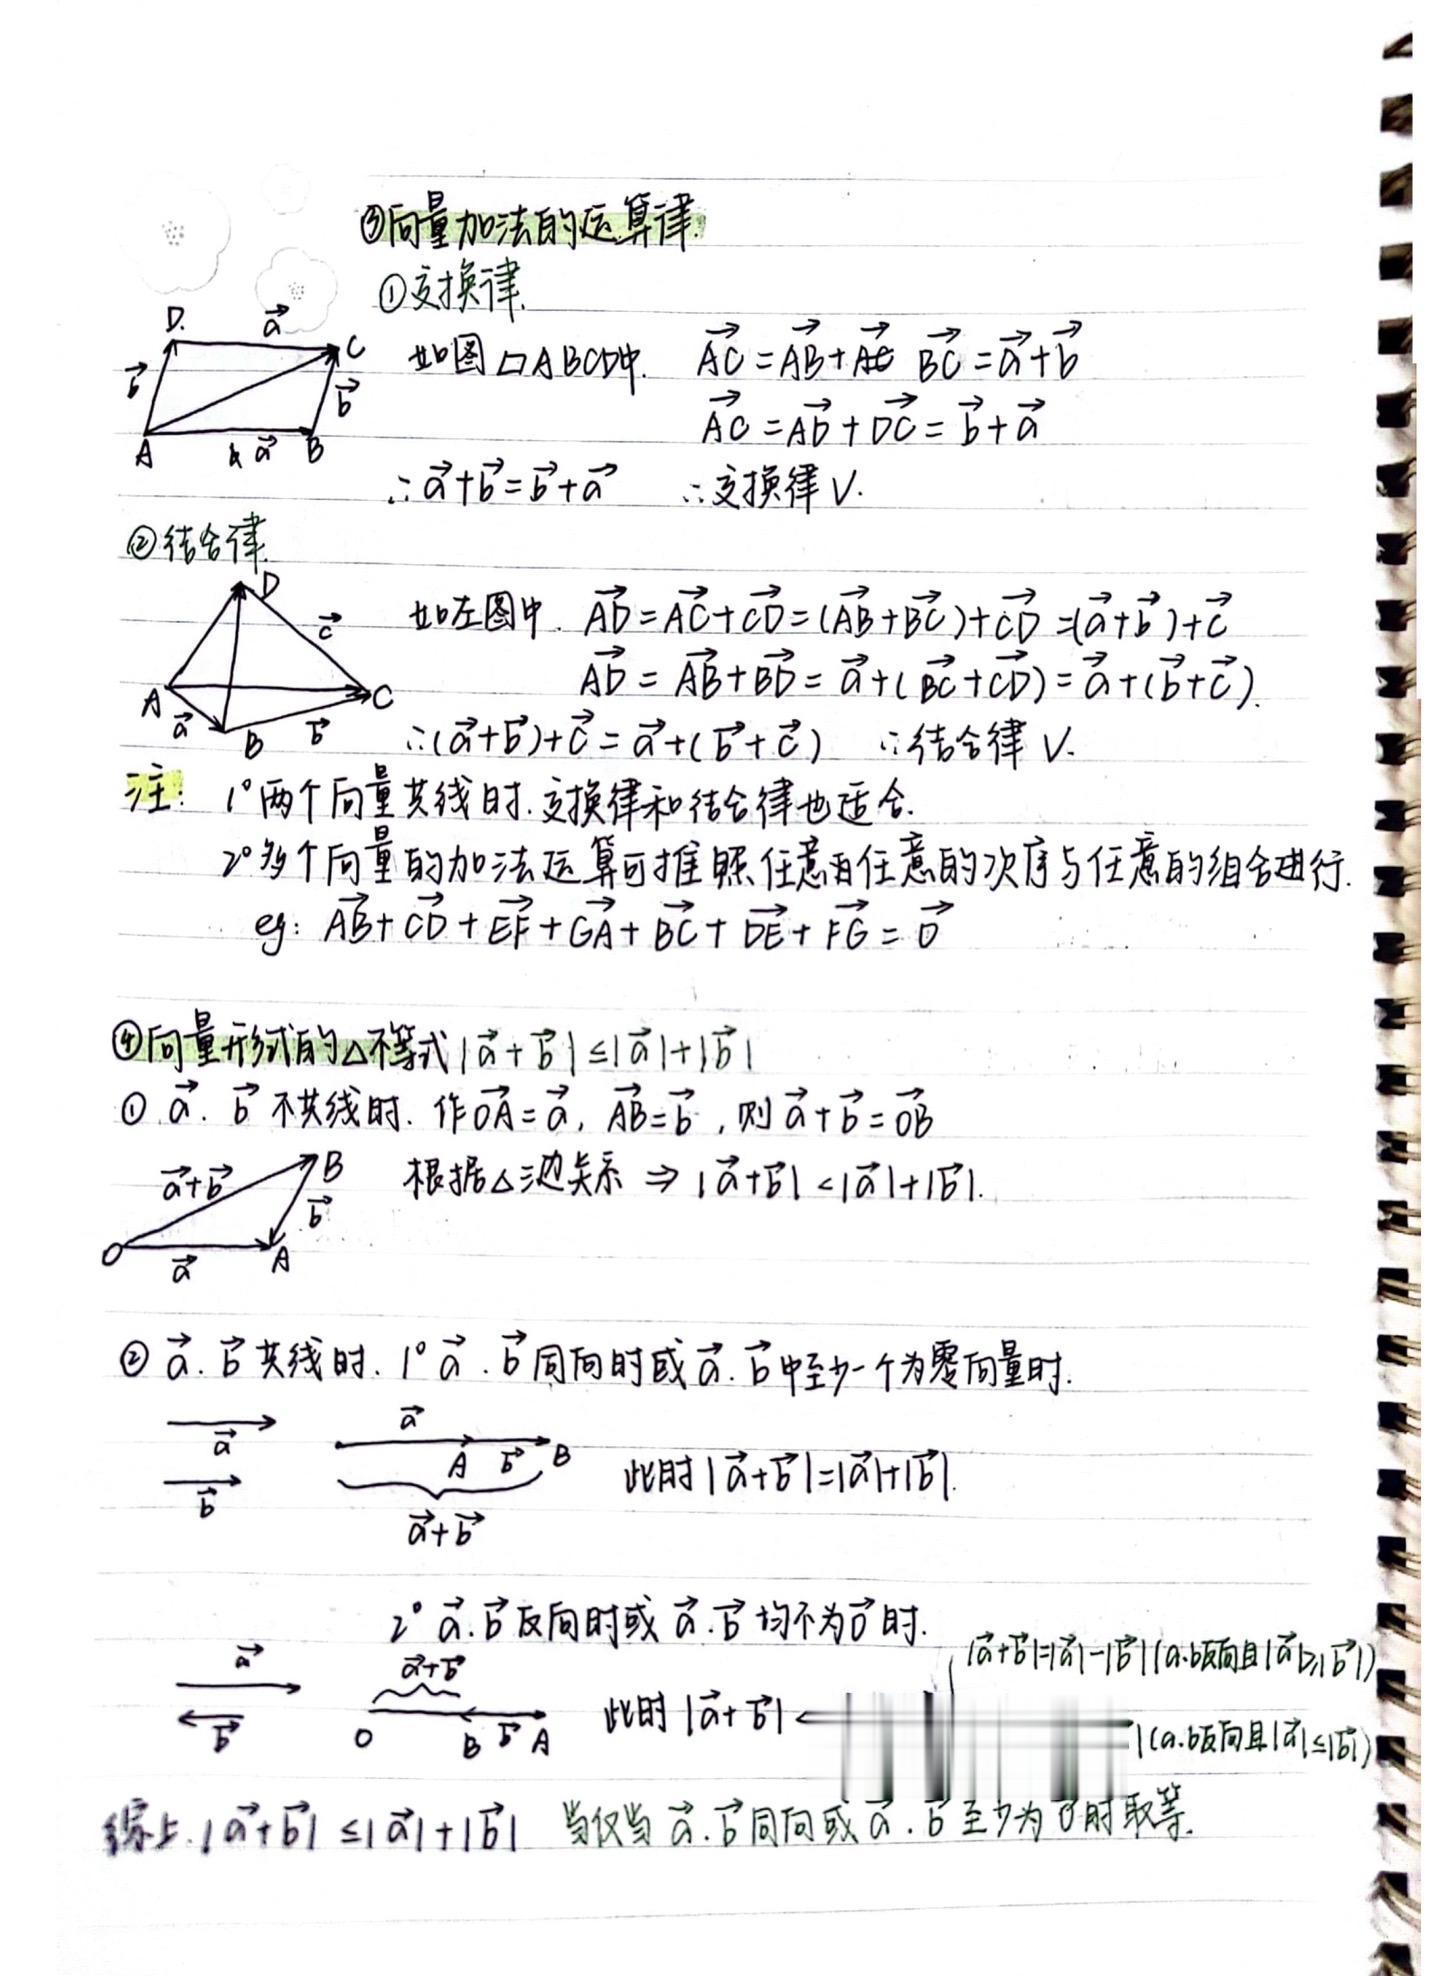 ③向量加法的运算律.
①交换律.
D. a⃗ C
b⃗ b⃗
A a⃗ B
如图▱ABCD中. AC⃗=AB⃗+BC⃗=a⃗+b⃗
AC⃗=AD⃗+DC⃗=b⃗+a⃗
∴a⃗+b⃗=b⃗+a⃗ ∴交换律√.
②结合律.
D
c⃗
A C
a⃗ B b⃗
如左图中. AD⃗=AC⃗+CD⃗=(AB⃗+BC⃗)+CD⃗=(a⃗+b⃗)+c⃗
AD⃗=AB⃗+BD⃗=a⃗+(BC⃗+CD⃗)=a⃗+(b⃗+c⃗).
∴(a⃗+b⃗)+c⃗=a⃗+(b⃗+c⃗) ∴结合律√.
注: 1°两个向量共线时.交换律和结合律也适合.
2°多个向量的加法运算可按照任意的次序与任意的组合进行.
eg: AB⃗+CD⃗+EF⃗+GA⃗+BC⃗+DE⃗+FG⃗=0⃗
④向量形式的△不等式|a⃗+b⃗|≤|a⃗|+|b⃗|
①a⃗.b⃗不共线时.作OA⃗=a⃗, AB⃗=b⃗,则a⃗+b⃗=OB⃗
a⃗+b⃗ B
b⃗
O a⃗ A
根据△三边关系⇒|a⃗+b⃗|<|a⃗|+|b⃗|.
②a⃗.b⃗共线时.1°a⃗.b⃗同向时或a⃗.b⃗中至少一个为零向量时.
a⃗ a⃗
b⃗ A b⃗ B
a⃗+b⃗
此时|a⃗+b⃗|=|a⃗|+|b⃗|.
2°a⃗.b⃗反向时或a⃗.b⃗均不为0⃗时.
a⃗ a⃗+b⃗
b⃗ O B b⃗ A
此时|a⃗+b⃗|<
|a⃗+b⃗|=|a⃗|-|b⃗|(a.b反向且|a⃗|≥|b⃗|)
|(a.b反向且|a⃗|≤|b⃗|)
综上.|a⃗+b⃗|≤|a⃗|+|b⃗| 当仅当a⃗.b⃗同向或a⃗.b⃗至少为0⃗时取等.